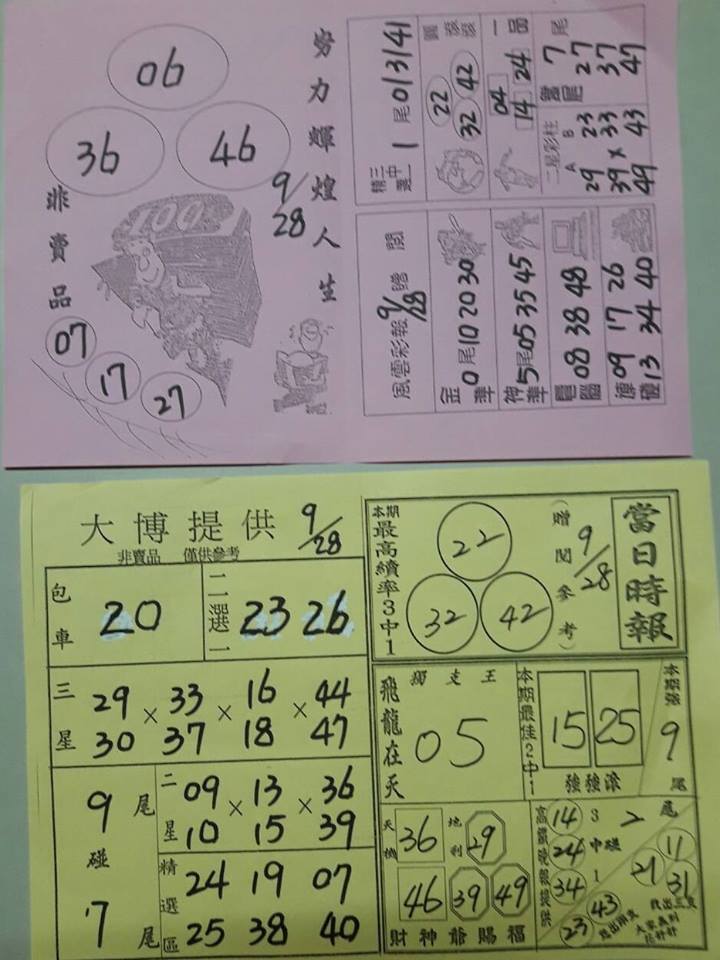 努力輝煌人生
9/28
06
36 46
非賣品
100
07
17
27
精三
選中一
1尾 01 31 41
22 42
32
一 24
04 14
尾
7
27
37
47
二星彩柱
A B
29 23
39 × 33
49 43
風雲彩報 贈閱
9/28
金準
0尾 10 20 30
神準
5尾 05 35 45
08 38 48
09 17 26
13 34 40
大博提供
9/28
非賣品 僅供參考
包車
20
二二選一
23 26
三星
29 33 16 44
× × ×
30 37 18 47
9尾
碰
7尾
二星
09 13 36
× ×
10 15 39
精選區
24 19 07
25 38 40
當日時報
9/28
(贈閱參考)
本期
最高績率3中1
22
32 42
飛龍在天
獨支王
05
本期最佳2中1
15 25
強強滾
本期強
9
尾
天機
36
地利
29
46 39 49
財神爺賜福
高鐵晚報提供
14
24
34
3中1
碰
2尾
11
21
31
23 43